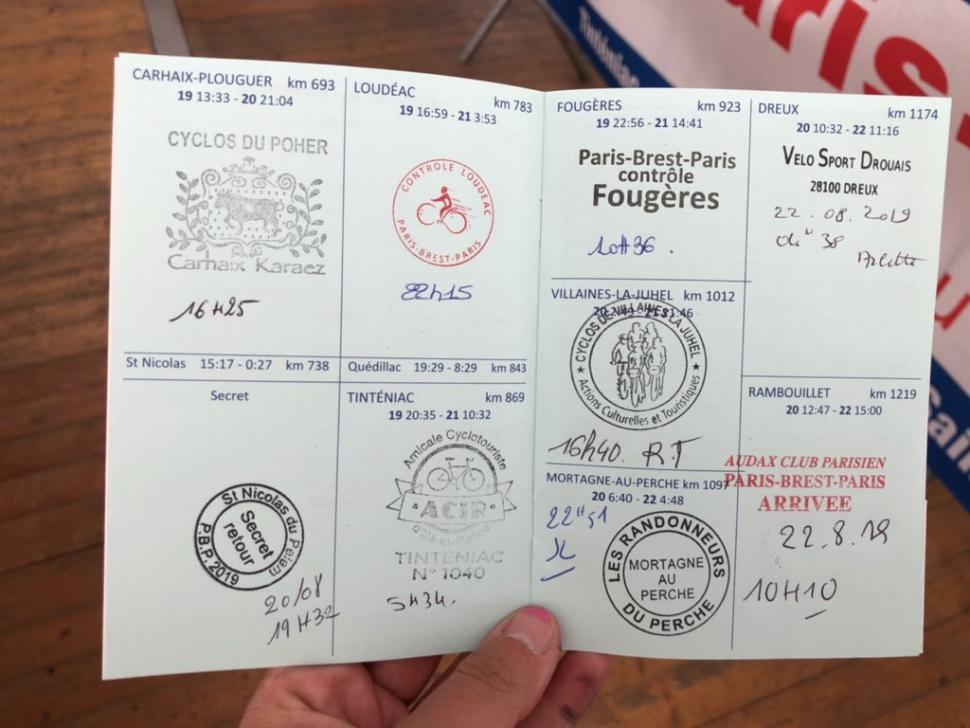 CARHAIX-PLOUGUER km 693
19 13:33 - 20 21:04
CYCLOS DU POHER
Carhaix Karaez
16H25
St Nicolas 15:17 - 0:27 km 738
Secret
St Nicolas du Pelem
Secret
retour
P.B.P. 2019
20/08
19H32
LOUDÉAC km 783
19 16:59 - 21 3:53
CONTROLE LOUDEAC
PARIS-BREST-PARIS
22H15
Quédillac 19:29 - 8:29 km 843
TINTÉNIAC km 869
19 20:35 - 21 10:32
Amicale Cyclotouriste
ACIR
TINTÉNIAC
N° 1040
5H34.
FOUGÈRES km 923
19 22:56 - 21 14:41
Paris-Brest-Paris
contrôle
Fougères
10H36.
VILLAINES-LA-JUHEL km 1012
CYCLOS DE VILLAINES LA JUHEL
Actions Culturelles et Touristiques
16h40. R.T
MORTAGNE-AU-PERCHE km 1097
20 6:40 - 22 4:48
22H51
LES RANDONNEURS
MORTAGNE
AU
PERCHE
DU PERCHE
DREUX km 1174
20 10:32 - 22 11:16
VELO SPORT DROUAIS
28100 DREUX
22.08.2019
04H 38
RAMBOUILLET km 1219
20 12:47 - 22 15:00
AUDAX CLUB PARISIEN
PARIS-BREST-PARIS
ARRIVEE
22.8.19
10H10
Tinténiac